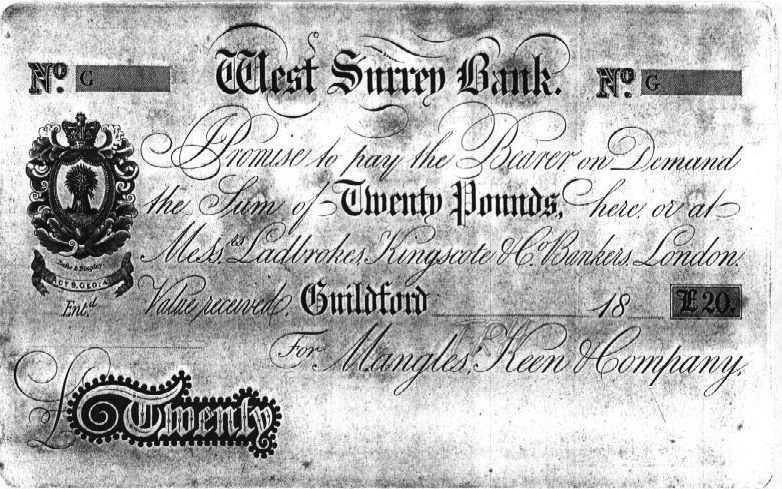 West Surrey Bank.
Nº. G
Nº. G
Promise to pay the Bearer on Demand
the Sum of Twenty Pounds, here or at
Messrs Ladbrokes, Kingscote & Co. Bankers, London.
Value received. Guildford 18 £20.
ACT 9, GEO: 4
Entd.
For Mangles, Keen & Company.
£ Twenty